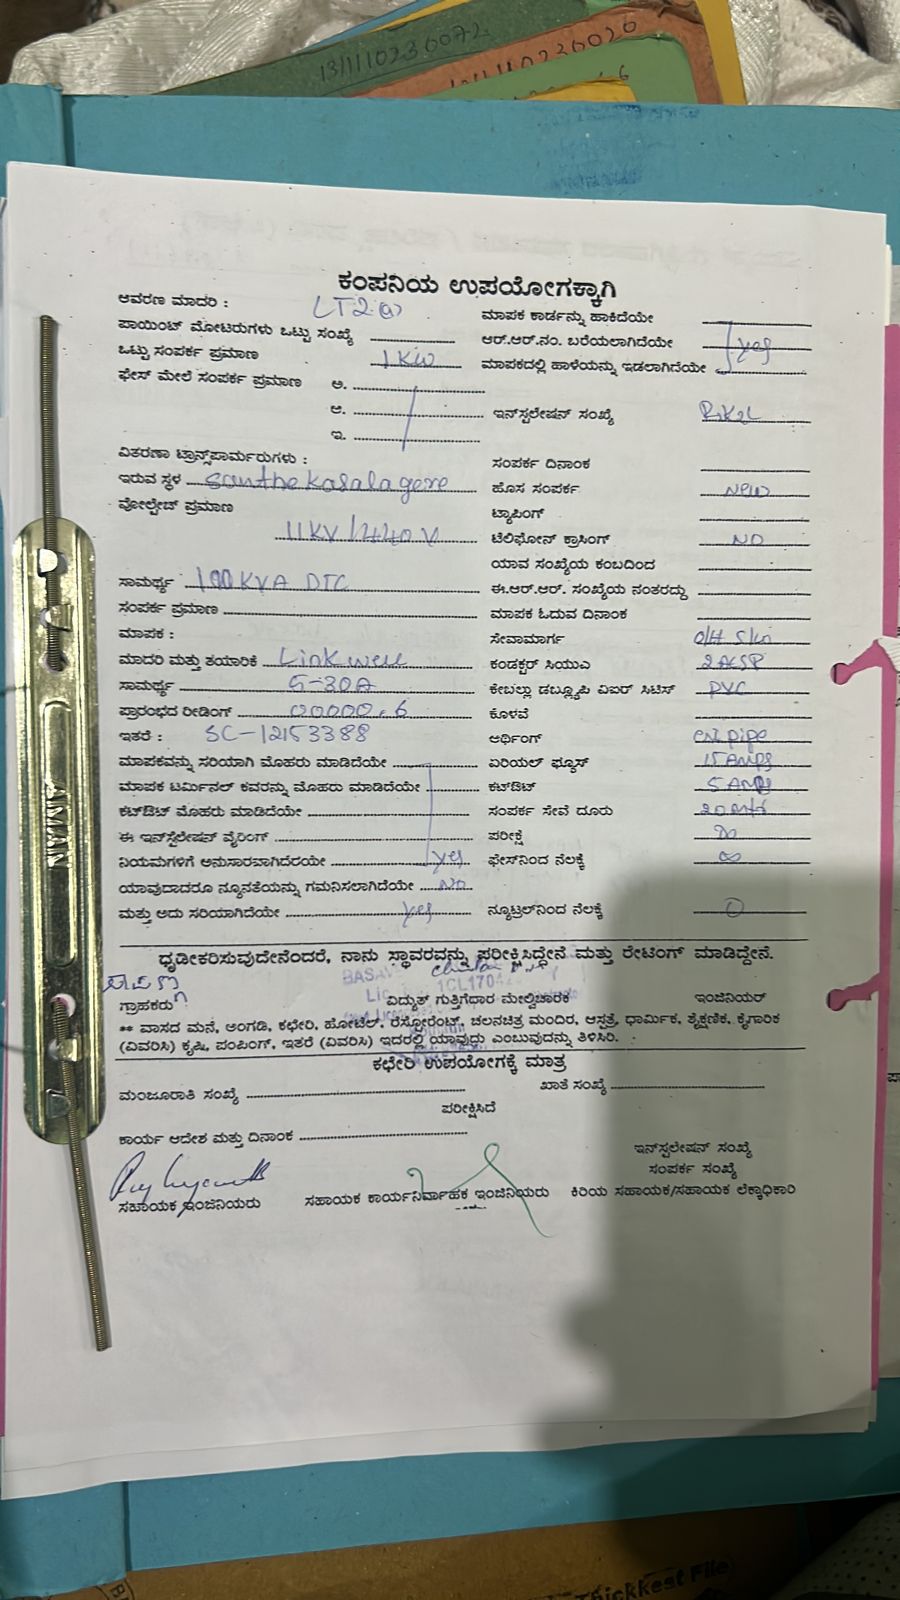 13111110236072
ಕಂಪನಿಯ ಉಪಯೋಗಕ್ಕಾಗಿ
ಆವರಣ ಮಾದರಿ : LT2(a)
ಮಾಪಕ ಕಾರ್ಡನ್ನು ಹಾಕಿದೆಯೇ
ಪಾಯಿಂಟ್ ಮೋಟರುಗಳು ಒಟ್ಟು ಸಂಖ್ಯೆ
ಆರ್.ಆರ್.ನಂ. ಬರೆಯಲಾಗಿದೆಯೇ yes
ಒಟ್ಟು ಸಂಪರ್ಕ ಪ್ರಮಾಣ 1KW
ಮಾಪಕದಲ್ಲಿ ಹಾಳೆಯನ್ನು ಇಡಲಾಗಿದೆಯೇ
ಫೇಸ್ ಮೇಲೆ ಸಂಪರ್ಕ ಪ್ರಮಾಣ ಅ.
ಆ.
ಇನ್‌ಸ್ಟಲೇಷನ್ ಸಂಖ್ಯೆ
ಇ.
ವಿತರಣಾ ಟ್ರಾನ್ಸ್‌ಪಾರ್ಮರುಗಳು :
ಸಂಪರ್ಕ ದಿನಾಂಕ
ಇರುವ ಸ್ಥಳ santhekasalagere
ಹೊಸ ಸಂಪರ್ಕ NEW
ವೋಲ್ಟೇಜ್ ಪ್ರಮಾಣ
ಟ್ಯಾಪಿಂಗ್
11KV/440V
ಟೆಲಿಫೋನ್ ಕ್ರಾಸಿಂಗ್ NO
ಯಾವ ಸಂಖ್ಯೆಯ ಕಂಬದಿಂದ
ಸಾಮರ್ಥ್ಯ 100KVA DTC
ಈ.ಆರ್.ಆರ್. ಸಂಖ್ಯೆಯ ನಂತರದ್ದು
ಸಂಪರ್ಕ ಪ್ರಮಾಣ
ಮಾಪಕ ಓದುವ ದಿನಾಂಕ
ಮಾಪಕ :
ಸೇವಾಮಾರ್ಗ O/H
ಮಾದರಿ ಮತ್ತು ತಯಾರಿಕೆ Linkwell
ಕಂಡಕ್ಟರ್ ಸಿಯುಎ
ಸಾಮರ್ಥ್ಯ 5-30A
ಕೇಬಲ್ಲು ಡಬ್ಲ್ಯೂಪಿ ವಿಐರ್ ಸಿಟಿಸ್ PVC
ಪ್ರಾರಂಭದ ರೀಡಿಂಗ್ 00000.6
ಕೊಳವೆ
ಇತರೆ : SC-12153388
ಅರ್ಥಿಂಗ್ pipe
ಮಾಪಕವನ್ನು ಸರಿಯಾಗಿ ಮೊಹರು ಮಾಡಿದೆಯೇ
ಏರಿಯಲ್ ಫ್ಯೂಸ್ 15 Amps
ಮಾಪಕ ಟರ್ಮಿನಲ್ ಕವರನ್ನು ಮೊಹರು ಮಾಡಿದೆಯೇ
ಕಟ್‌ಔಟ್ 5 Amps
ಕಟ್‌ಔಟ್ ಮೊಹರು ಮಾಡಿದೆಯೇ
ಸಂಪರ್ಕ ಸೇವೆ ದೂರು
ಈ ಇನ್‌ಸ್ಟೆಲೇಷನ್ ವೈರಿಂಗ್
ಪರೀಕ್ಷೆ ∞
ನಿಯಮಗಳಿಗೆ ಅನುಸಾರವಾಗಿದೆರಯೇ yes
ಫೇಸ್‌ನಿಂದ ನೆಲಕ್ಕೆ ∞
ಯಾವುದಾದರೂ ನ್ಯೂನತೆಯನ್ನು ಗಮನಿಸಲಾಗಿದೆಯೇ No
ಮತ್ತು ಅದು ಸರಿಯಾಗಿದೆಯೇ yes
ನ್ಯೂಟ್ರಲ್‌ನಿಂದ ನೆಲಕ್ಕೆ 0
ಧೃಡೀಕರಿಸುವುದೇನೆಂದರೆ, ನಾನು ಸ್ಥಾವರವನ್ನು ಪರೀಕ್ಷಿಸಿದ್ದೇನೆ ಮತ್ತು ರೇಟಿಂಗ್ ಮಾಡಿದ್ದೇನೆ.
ಗ್ರಾಹಕರು
ವಿದ್ಯುತ್ ಗುತ್ತಿಗೆದಾರ ಮೇಲ್ವಿಚಾರಕ
ಇಂಜಿನಿಯರ್
** ವಾಸದ ಮನೆ, ಅಂಗಡಿ, ಕಛೇರಿ, ಹೋಟೆಲ್, ರೆಸ್ಟೋರೆಂಟ್, ಚಲನಚಿತ್ರ ಮಂದಿರ, ಆಸ್ಪತ್ರೆ, ಧಾರ್ಮಿಕ, ಶೈಕ್ಷಣಿಕ, ಕೈಗಾರಿಕ
(ವಿವರಿಸಿ) ಕೃಷಿ, ಪಂಪಿಂಗ್, ಇತರೆ (ವಿವರಿಸಿ) ಇದರಲ್ಲಿ ಯಾವುದ್ದು ಎಂಬುವುದನ್ನು ತಿಳಿಸಿರಿ.
ಕಛೇರಿ ಉಪಯೋಗಕ್ಕೆ ಮಾತ್ರ
ಮಂಜೂರಾತಿ ಸಂಖ್ಯೆ
ಖಾತೆ ಸಂಖ್ಯೆ
ಪರೀಕ್ಷಿಸಿದೆ
ಕಾರ್ಯ ಆದೇಶ ಮತ್ತು ದಿನಾಂಕ
ಇನ್‌ಸ್ಟಲೇಷನ್ ಸಂಖ್ಯೆ
ಸಂಪರ್ಕ ಸಂಖ್ಯೆ
ಸಹಾಯಕ ಇಂಜಿನಿಯರು
ಸಹಾಯಕ ಕಾರ್ಯನಿರ್ವಾಹಕ ಇಂಜಿನಿಯರು
ಕಿರಿಯ ಸಹಾಯಕ/ಸಹಾಯಕ ಲೆಕ್ಕಾಧಿಕಾರಿ
AMAN
Thickkest File